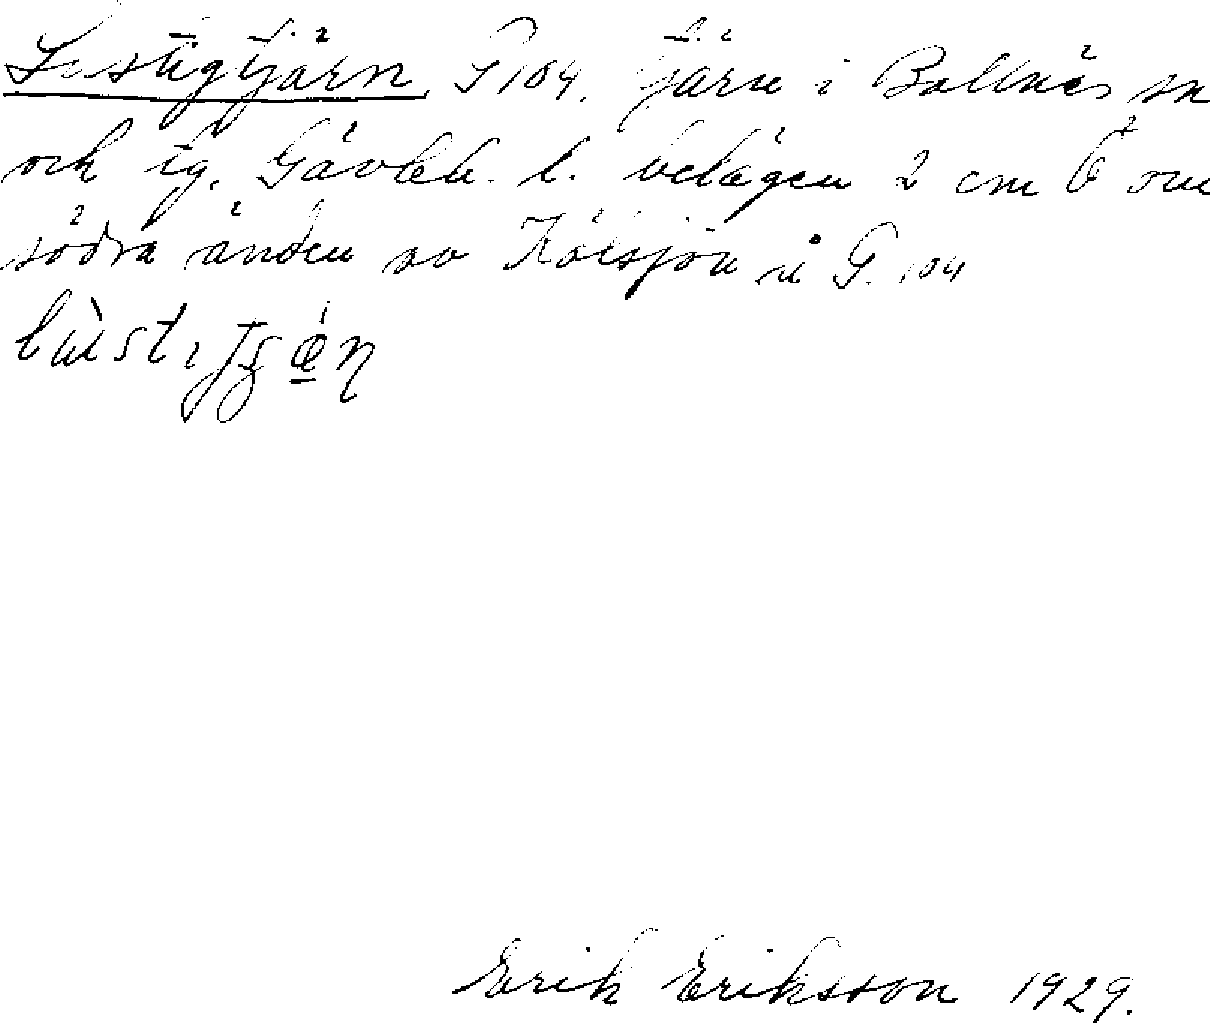 Lustigtjärn G 104. tjärn i Bollnäs sn
och tg. Gävleb. l. belägen 2 cm Ö om
södra änden av Kölsjön å G. 104
Erik Eriksson 1929.